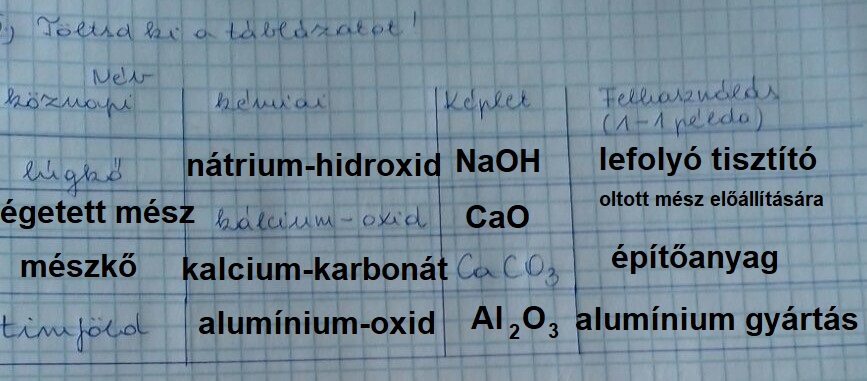 5) Töltsd ki a táblázatot!
Név
köznapi kémiai Képlet Felhasználás
(1-1 példa)
lúgkő nátrium-hidroxid NaOH lefolyó tisztító
égetett mész kálcium-oxid CaO oltott mész előállítására
mészkő kalcium-karbonát CaCO3 építőanyag
timföld alumínium-oxid Al2O3 alumínium gyártás